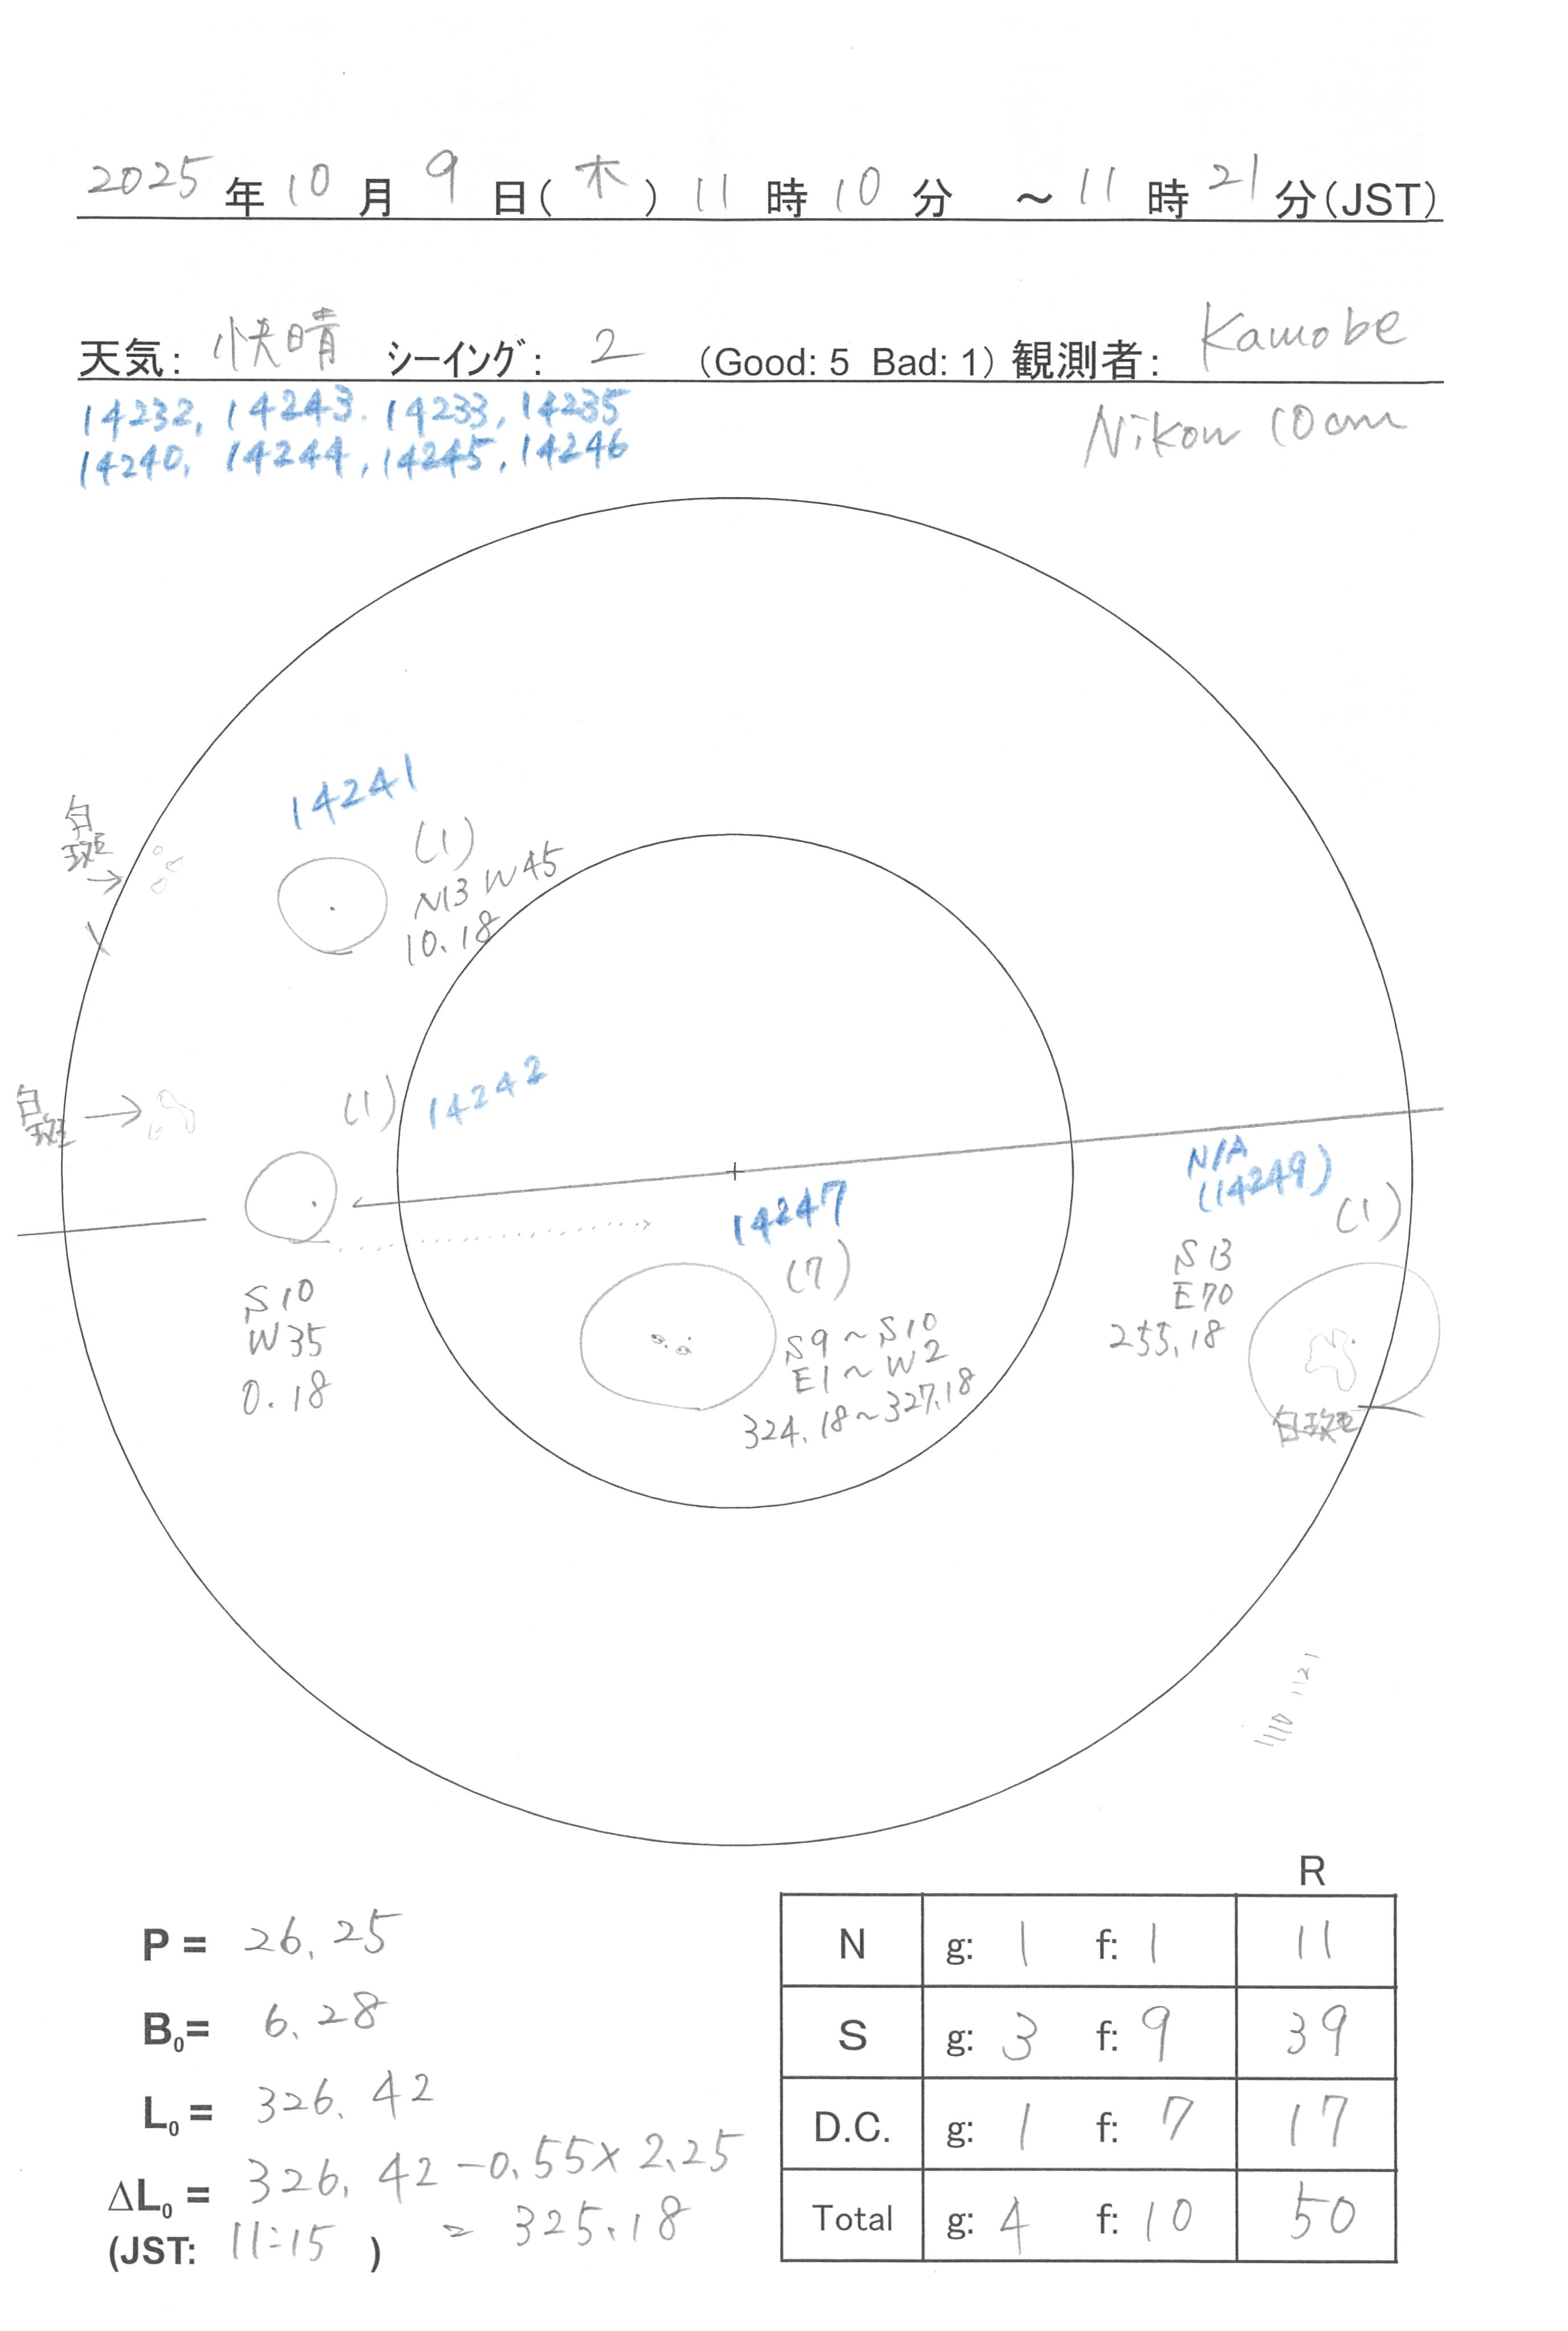 2025年10月9日(木)11時10分 ～11時21分(JST)
天気: 快晴 シーイング: 2 (Good: 5 Bad: 1) 観測者: Kamobe
14232, 14243. 14233, 14235
14240, 14244, 14245, 14246
Nikon 10cm
14241
(1)
N13 W45
10.18
白斑
白斑
(1) 14242
S10
W35
0.18
14247
(7)
S9～S10
E1～W2
324.18～327.18
N/A
(14249)
(1)
S13
E70
255.18
白斑
1110 1121
R
N g: 1 f: 1 11
S g: 3 f: 9 39
D.C. g: 1 f: 7 17
Total g: 4 f: 10 50
P = 26.25
B₀= 6.28
L₀ = 326.42
ΔL₀ = 326.42-0.55×2.25
(JST: 11:15 ) = 325.18